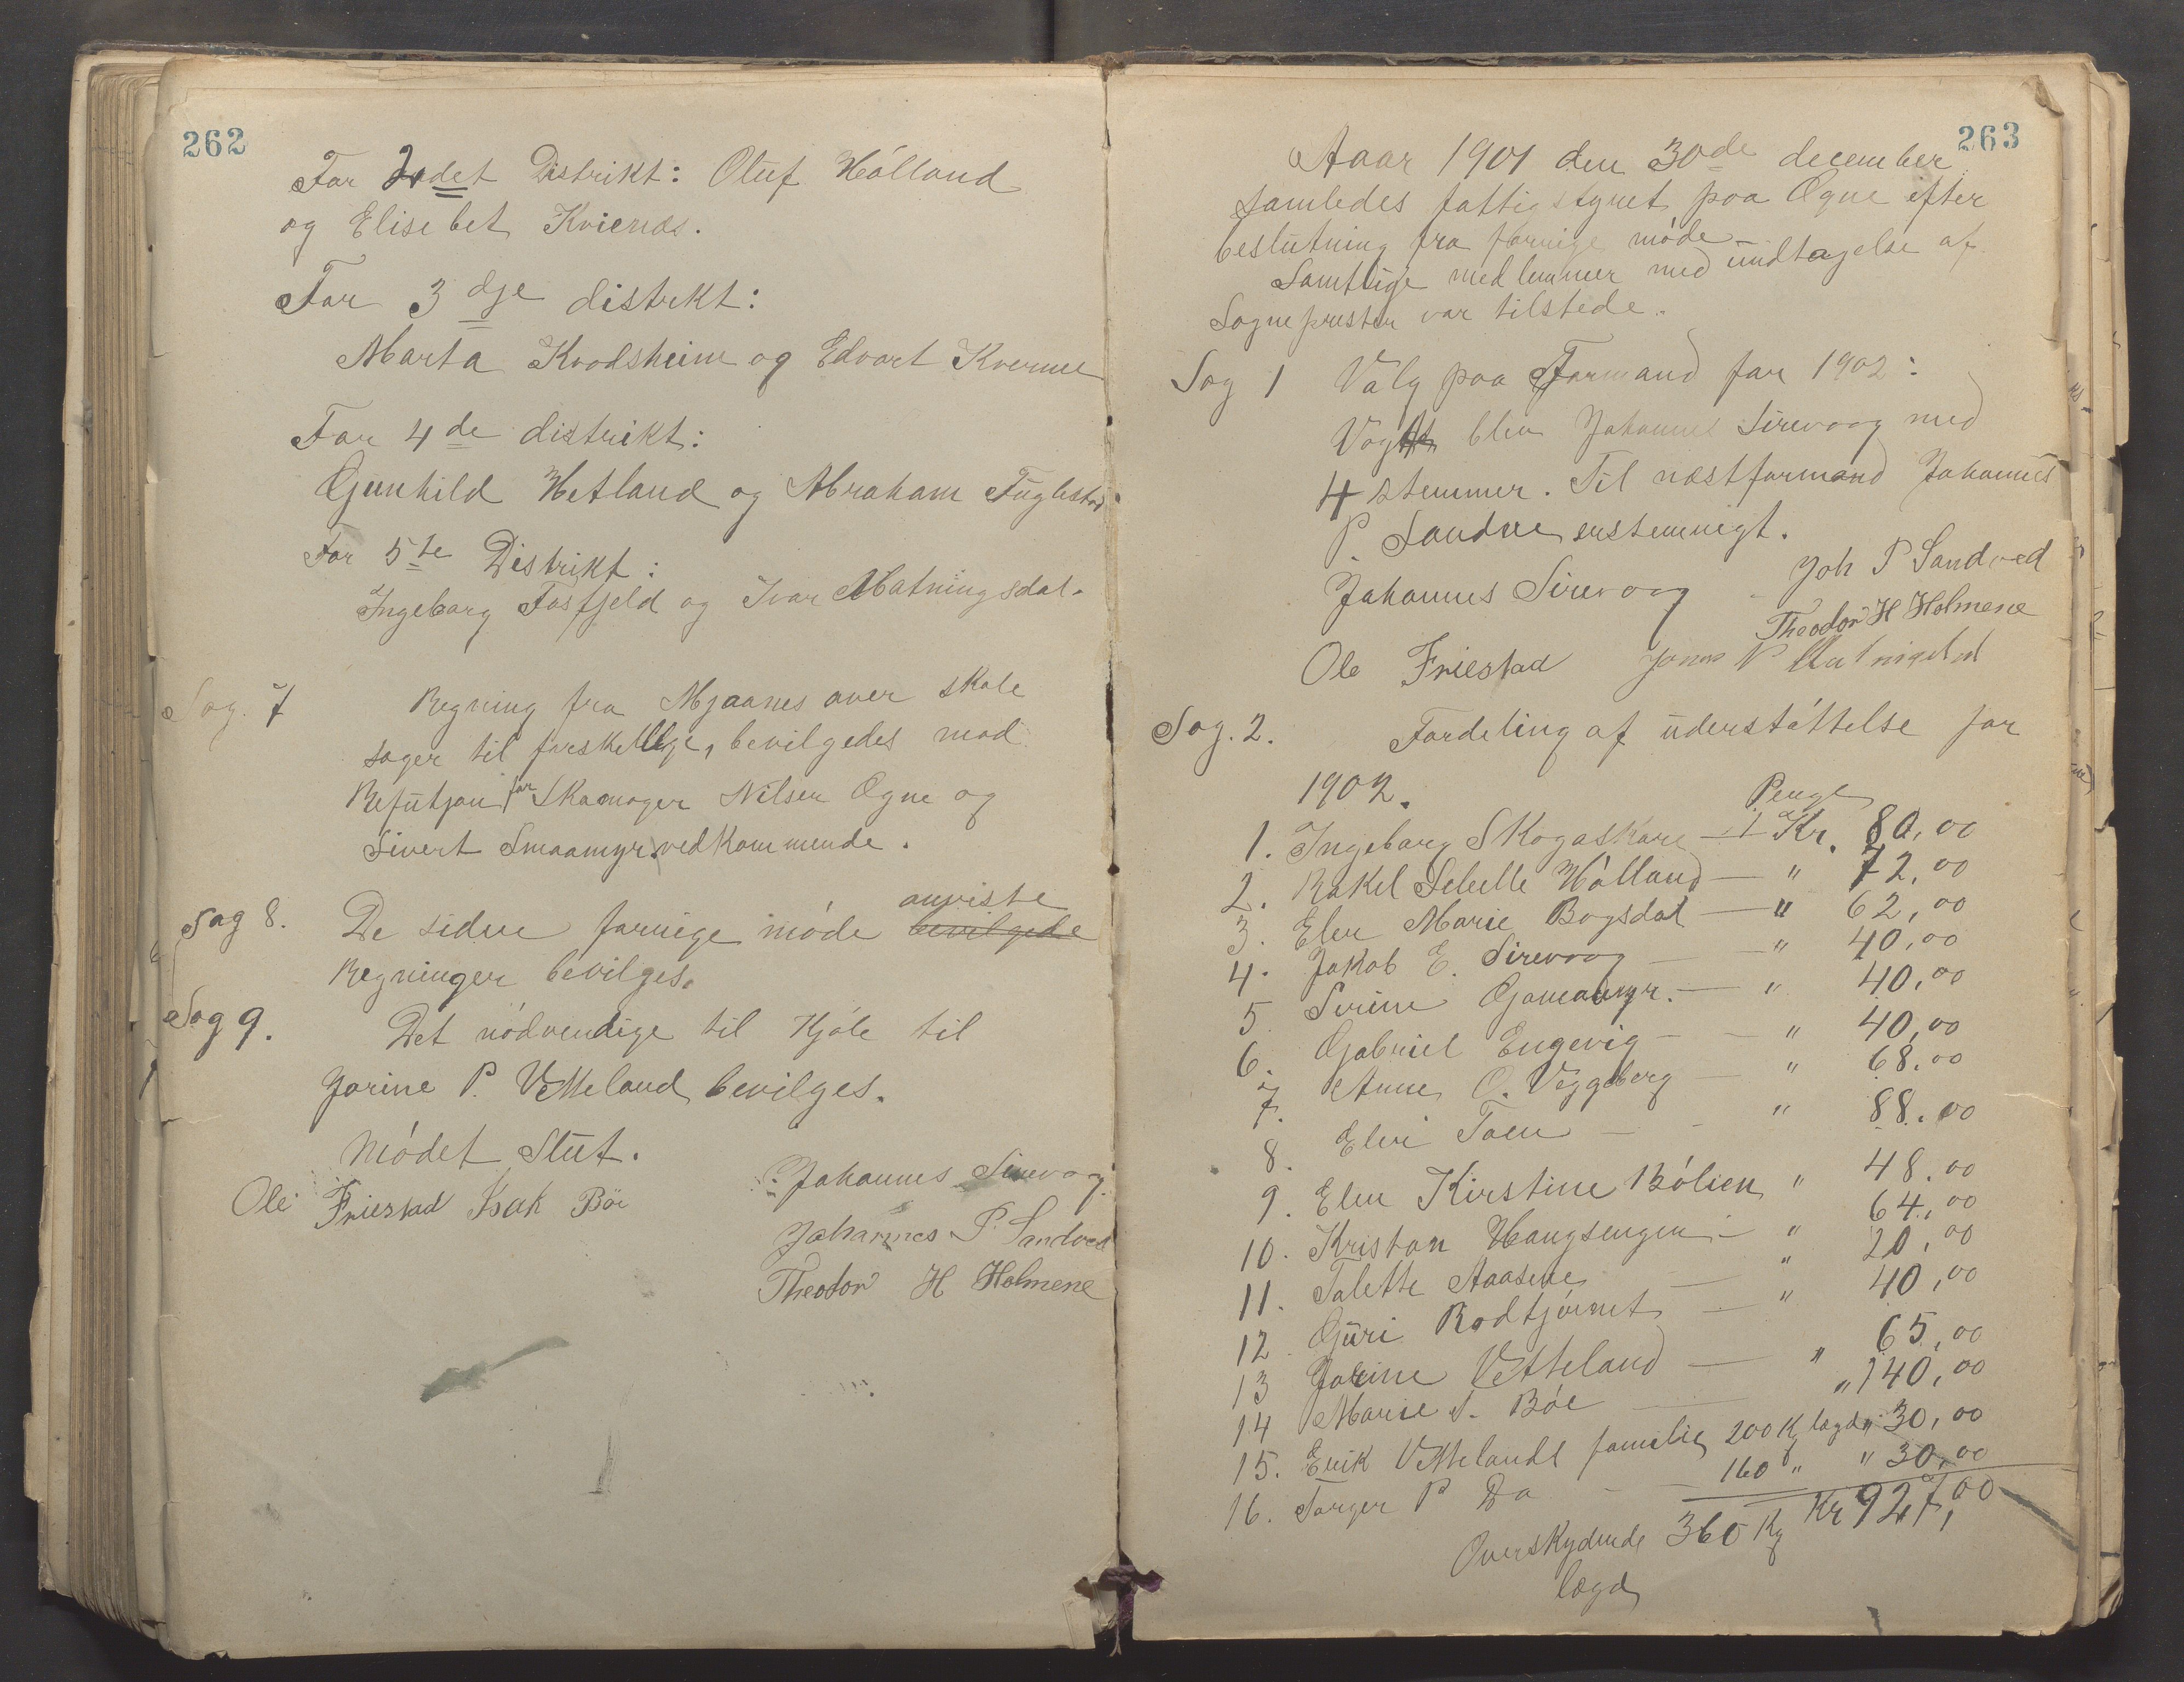 262
For 2det Distrikt: Oluf Hólland
og Elisebet Kvienæs.
For 3dje distrkt:
Marta Kvodsheim og Edvart
For 4de distrikt:
Gunhild Hetland og Abraham Fuglestad
For 5te Distrikt:
Ingeborg Fosfjeld og Ivar Matningsdal.
Sag. 7 Regning fra Mjaanes over skole
sager til forskellige, bevilgedes mod
for Skamager Nilsen Ogne og
Sivert Smaamyr vedkommende.
Sag 8. De siden forrige móde anviste bevilgede
Regninger bevilges.
Sag 9. Det nódvendige til Kjóle til
Jorine P. Vetteland bevilges.
Módet Slut.
Johannes Sirevog.
Ole Friestad Isak Böe
Johannes P. Sandved
Theodor H Holmene
263
Aaar 1901 den 30de december
samledes fattigstyret paa Ogne efter
beslutning fra forrige móde.
Samtlige medlemmer med undtagelse af
Sognepresten var tilstede.
Sag 1 Valg paa Formand for 1902:
blev Johannes Sirevaag med
4 stemmer. Til næstformand Johannes
P. Sandve enstemmigt.
Johannes Sirevaag Joh P Sandved
Theodor H Holmene
Ole Friestad Jonas P
Sag. 2. Fordeling af understóttelse for
1902. Penge
1. Ingeborg Skogaskare — Kr. 80,00
2. Rakel Hólland — " 72,00
3. Elen Marie Bogsdal — " 62,00
4. Jakob E. Sirevaag — " 40,00
5 Serine — " 40,00
6. Gabriel Engevig — " 40,00
7. Anne O. Veggeberg — " 68.00
8. Eleri Toen — " 88.00
9. Elen Kirstine Bólien " 48.00
10. Kristan Haugsengen — " 64,00
11. Talette Aaasene — " 20,00
12. Guri Rodtjórnet — " 40,00
13 Jorine Vetteland — " 65,00
14 Marie S. Bóe — " 140,00
15. Erik Vettelands familie 200 Kg lægd " 30,00
16. Torger P Do — 160 " " 30,00
Overskydende 360 Kg Kr 927,00
lægd